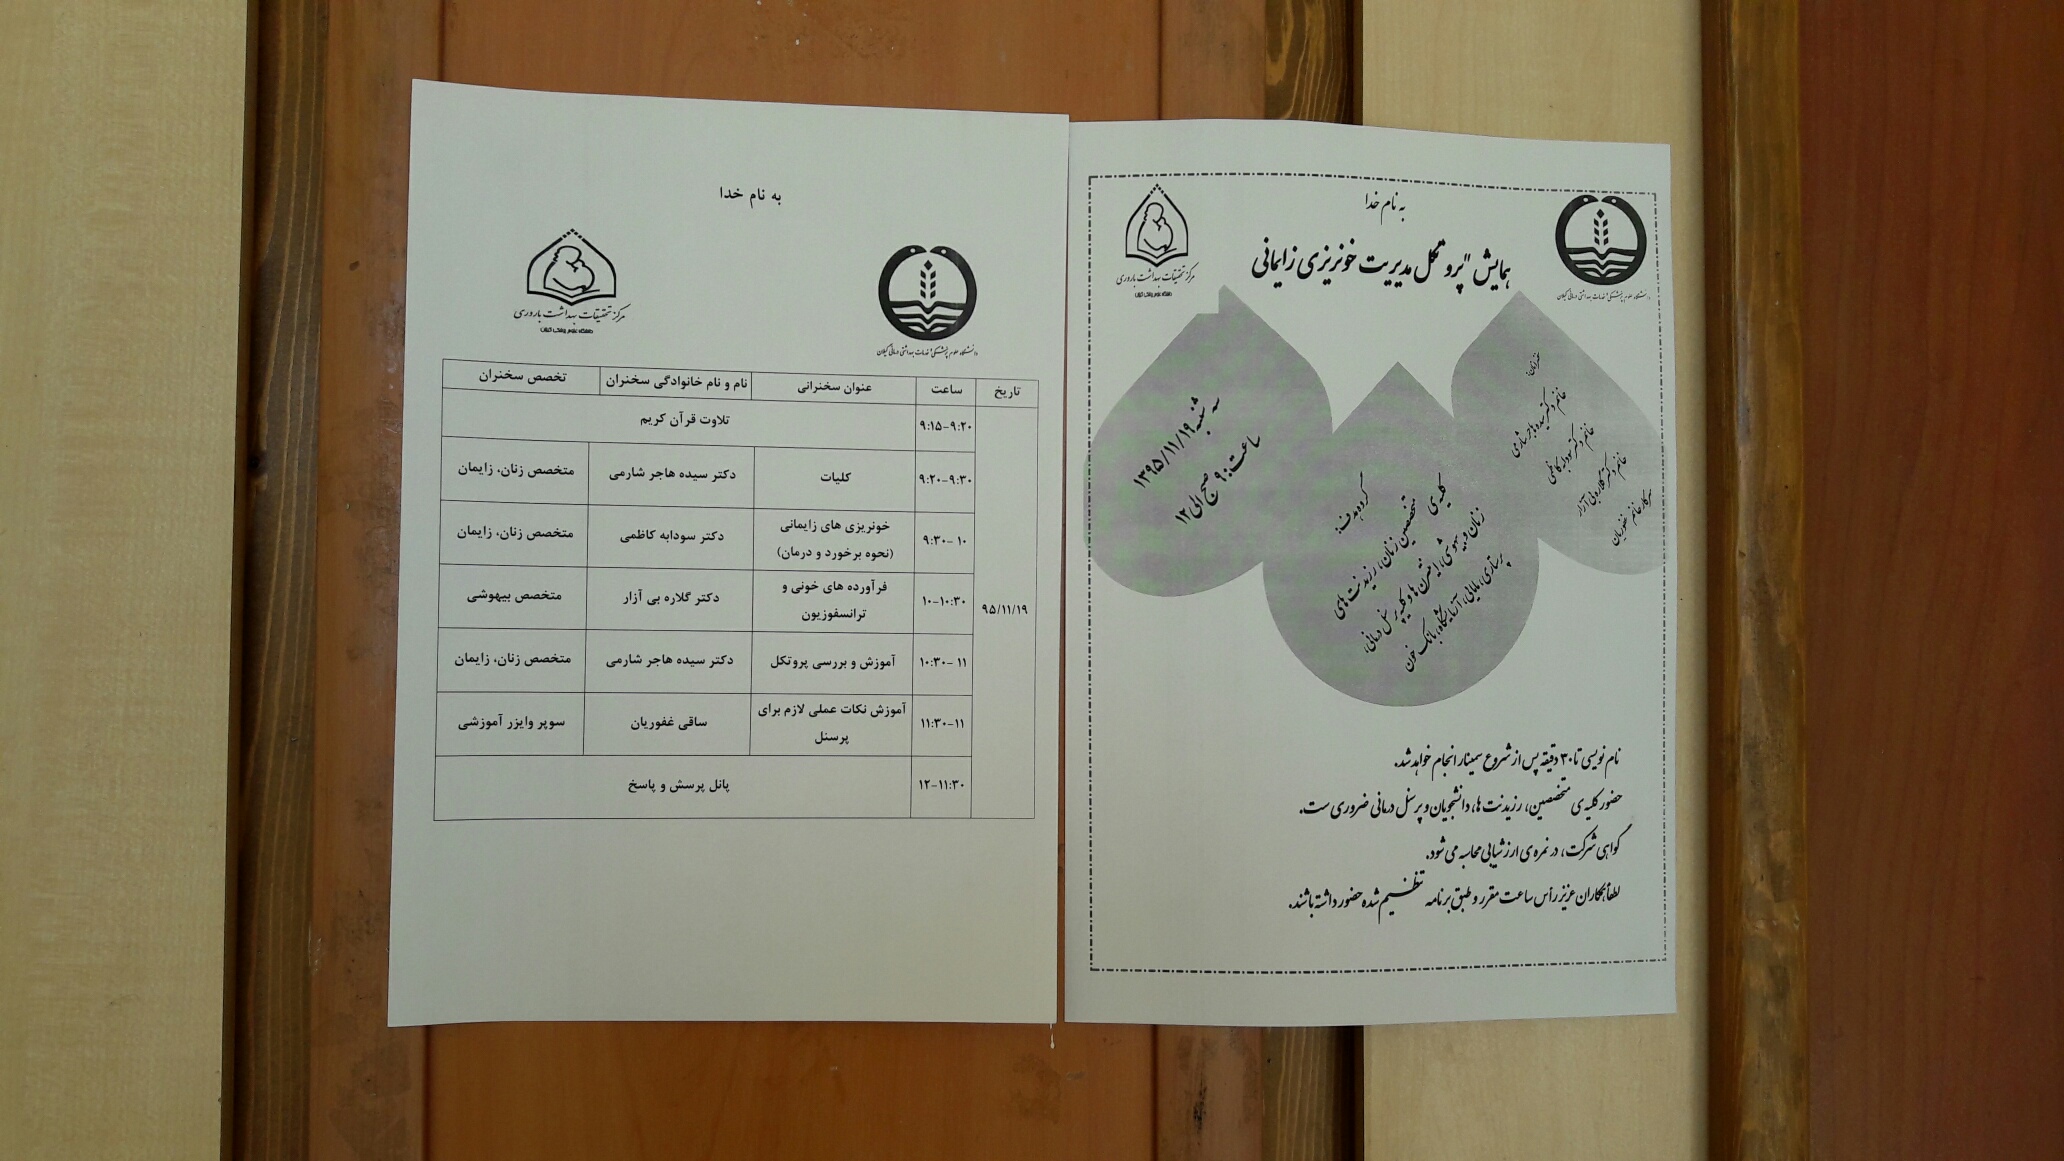 به نام خدا
همایش "پروتکل مدیریت خونریزی زایمانی
مرکز تحقیقات بهداشت باروری
دانشگاه علوم پزشکی گیلان
دانشگاه علوم پزشکی و خدمات بهداشتی درمانی گیلان
سخنرانان:
خانم دکتر سیده هاجر شارمی
خانم دکتر سودابه کاظمی
خانم دکتر گلاره بی آزار
سرکار خانم غفوریان
گروه هدف:
کلیه ی
متخصصین زنان، رزیدنت های
زنان و بیهوشی، اینترن ها و کلیه پرسنل درمانی،
پرستاری، مامایی، آزمایشگاه، بانک خون
سه شنبه ۱۳۹۵/۱۱/۱۹
ساعت: ۹ صبح الی ۱۲
نام نویسی تا ۳۰ دقیقه پس از شروع سمینار انجام خواهد شد.
حضور کلیه ی متخصصین، رزیدنت ها، دانشجویان و پرسنل درمانی ضروری ست.
گواهی شرکت، در نمره ی ارزشیابی محاسبه می شود.
لطفاً همکاران عزیز رأس ساعت مقرر و طبق برنامه تنظیم شده حضور داشته باشند.
به نام خدا
دانشگاه علوم پزشکی و خدمات بهداشتی درمانی گیلان
مرکز تحقیقات بهداشت باروری
دانشگاه علوم پزشکی گیلان
تاریخ ساعت عنوان سخنرانی نام و نام خانوادگی سخنران تخصص سخنران
۹:۱۵-۹:۲۰ تلاوت قرآن کریم
۹:۲۰-۹:۳۰ کلیات دکتر سیده هاجر شارمی متخصص زنان، زایمان
۹:۳۰-۱۰ خونریزی های زایمانی
(نحوه برخورد و درمان) دکتر سودابه کاظمی متخصص زنان، زایمان
۹۵/۱۱/۱۹ ۱۰-۱۰:۳۰ فرآورده های خونی و
ترانسفوزیون دکتر گلاره بی آزار متخصص بیهوشی
۱۰:۳۰-۱۱ آموزش و بررسی پروتکل دکتر سیده هاجر شارمی متخصص زنان، زایمان
۱۱:۳۰-۱۱ آموزش نکات عملی لازم برای
پرسنل ساقی غفوریان سوپر وایزر آموزشی
۱۲-۱۱:۳۰ پانل پرسش و پاسخ